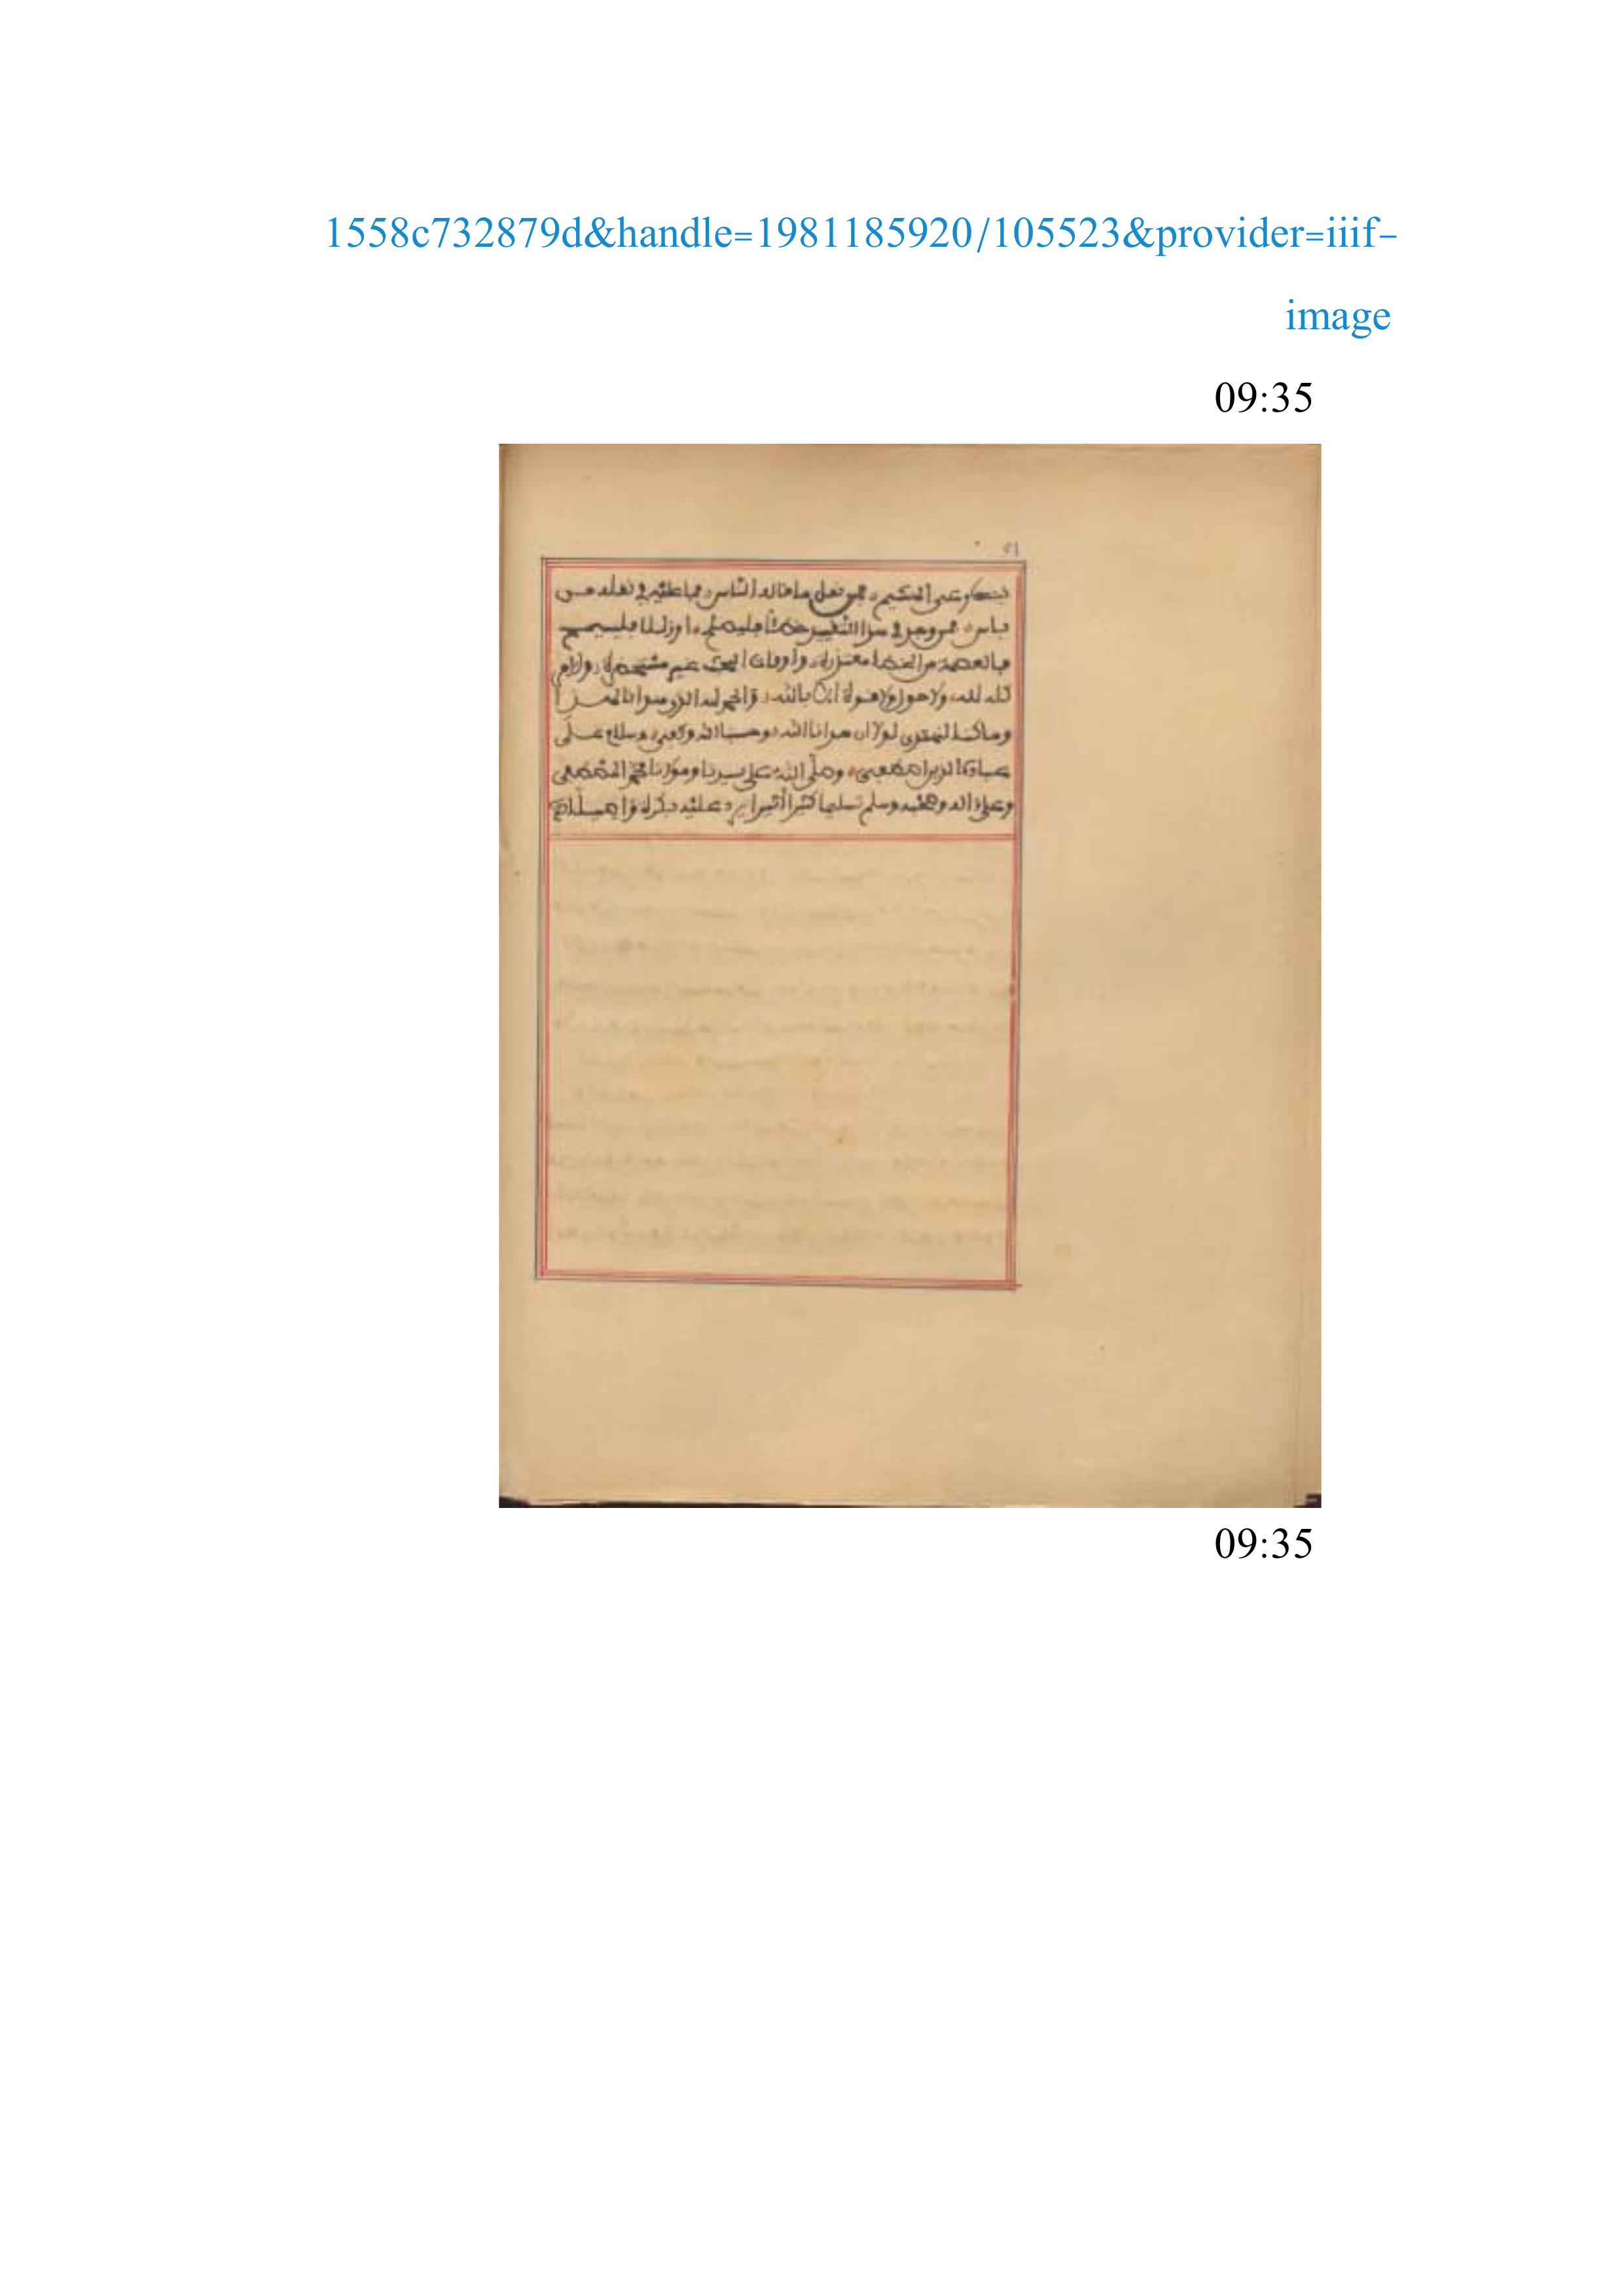 1558c732879d&handle=1981185920/105523&provider=iiif-
image
09:35
91
عن الحكيم، فمن نقل ما قاله الناس، فما عليه في نقله من
باس، فمن وجد في هذا التقييد خطأ فليصلح، او زللا فليسمح
فالعصمة من الخطا متعذرة، واوقات البحث غير متحصلة، والامر
كله لله، ولا حول ولا قوة الا بالله، والحمد لله الذي هدانا لهذا
وما كنا لنهتدي لولا ان هدانا الله، وحسبنا الله وكفى، وسلام على
عباده الذين اصطفى، وصلى الله على سيدنا ومولانا محمد المصطفى
وعلى اله وصحبه وسلم تسليما كثيرا اثيرا عليه بكرة واصيلا
09:35